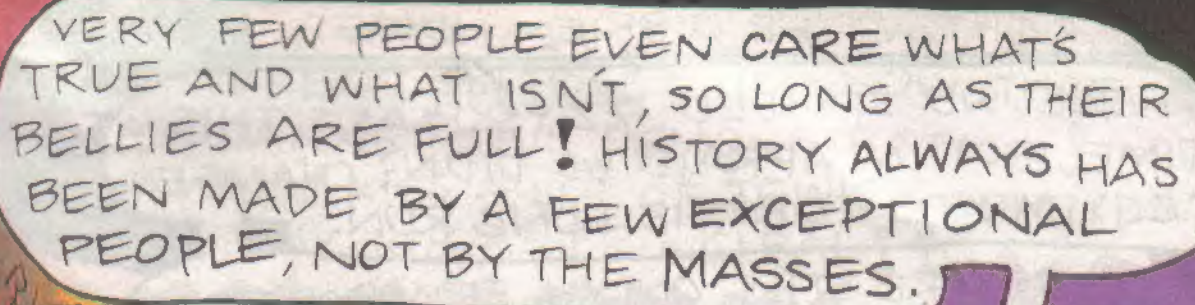 VERY FEW PEOPLE EVEN CARE WHAT'S
TRUE AND WHAT ISN'T, SO LONG AS THEIR
BELLIES ARE FULL! HISTORY ALWAYS HAS
BEEN MADE BY A FEW EXCEPTIONAL
PEOPLE, NOT BY THE MASSES.